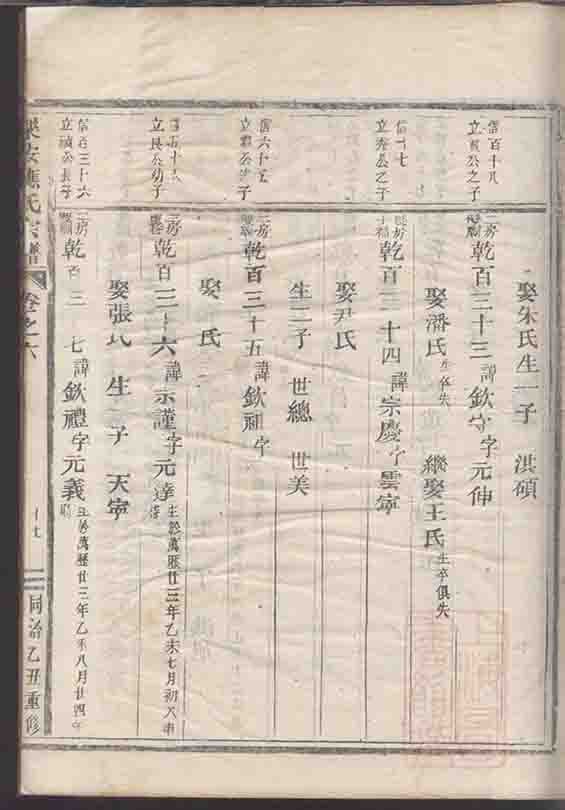 娶朱氏生一子 洪碩
信百十八
立公之子
二房
乾百三十三諱欽守字元伸
娶潘氏生卒失 繼娶王氏生卒俱失
信十七
立公之子
房
乾百三十四諱宗慶字雲寧
娶尹氏
生二子 世總 世美
信六十
立公子
二房
乾百三十五諱欽字
娶氏
十
立良公幼子
二房
乾百三十六諱宗謹字元達
生於萬曆廿三年乙未七月初八
娶張氏 生子 天寧
信百三十六
立公長子
二房
乾百三七諱欽禮字元義
生於萬曆廿三年乙未八月廿四
樂安氏宗譜
卷之六
十七
同治乙丑重修